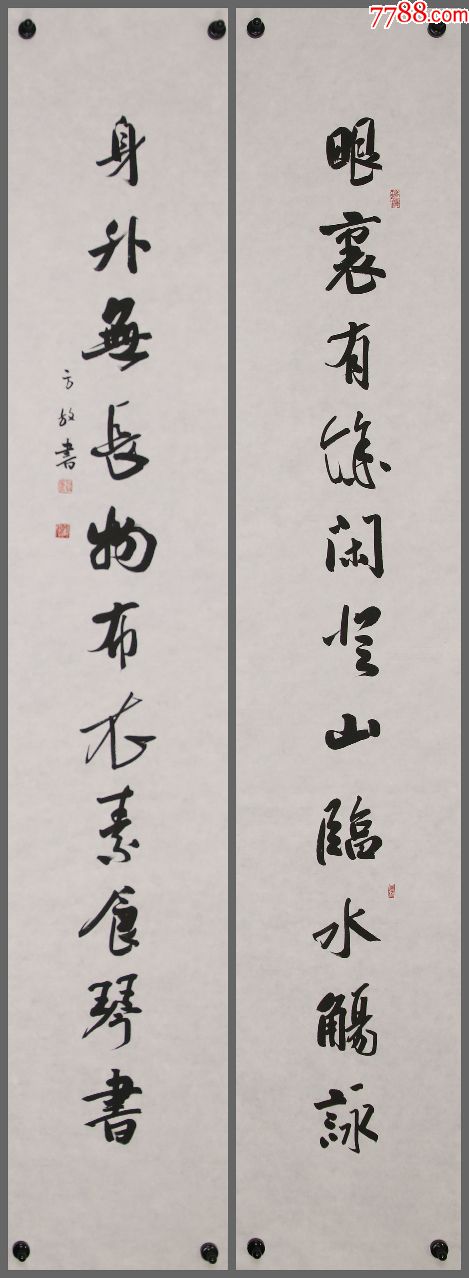 7788.com
眼裏有餘閑登山臨水觴詠
身外無長物布衣素食琴書
方放書